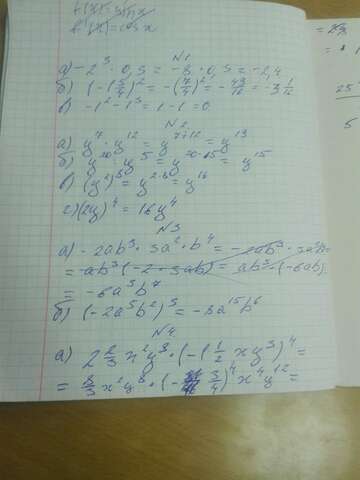 f(x)=sinx
f'(x)=cosx
N1
а) -2³ · 0,3 = -8 · 0,3 = -2,4
N2
а) y⁷ · y¹² = y⁷⁺¹² = y¹³
б) y²⁰ : y⁵ = y²⁰⁻⁰⁵ = y¹⁵
в) (y²)⁸ = y²·⁸ = y¹⁶
г) (2y)⁴ = 16y⁴
N3
а) -2ab³ · 3a² · b⁴ = -2ab³ · 3a²b⁴
= ab³(-2 · 3ab) = ab³ · (-6ab)
= -6a³b⁷
б) (-2a⁵b²)³ = -8a¹⁵b⁶
N4
а) 2 2/3 x²y⁸ · (-1 1/2 xy³)⁴ =
= 8/3 x²y⁸ · (- 3/4)⁴ x⁴y¹² =
25
5